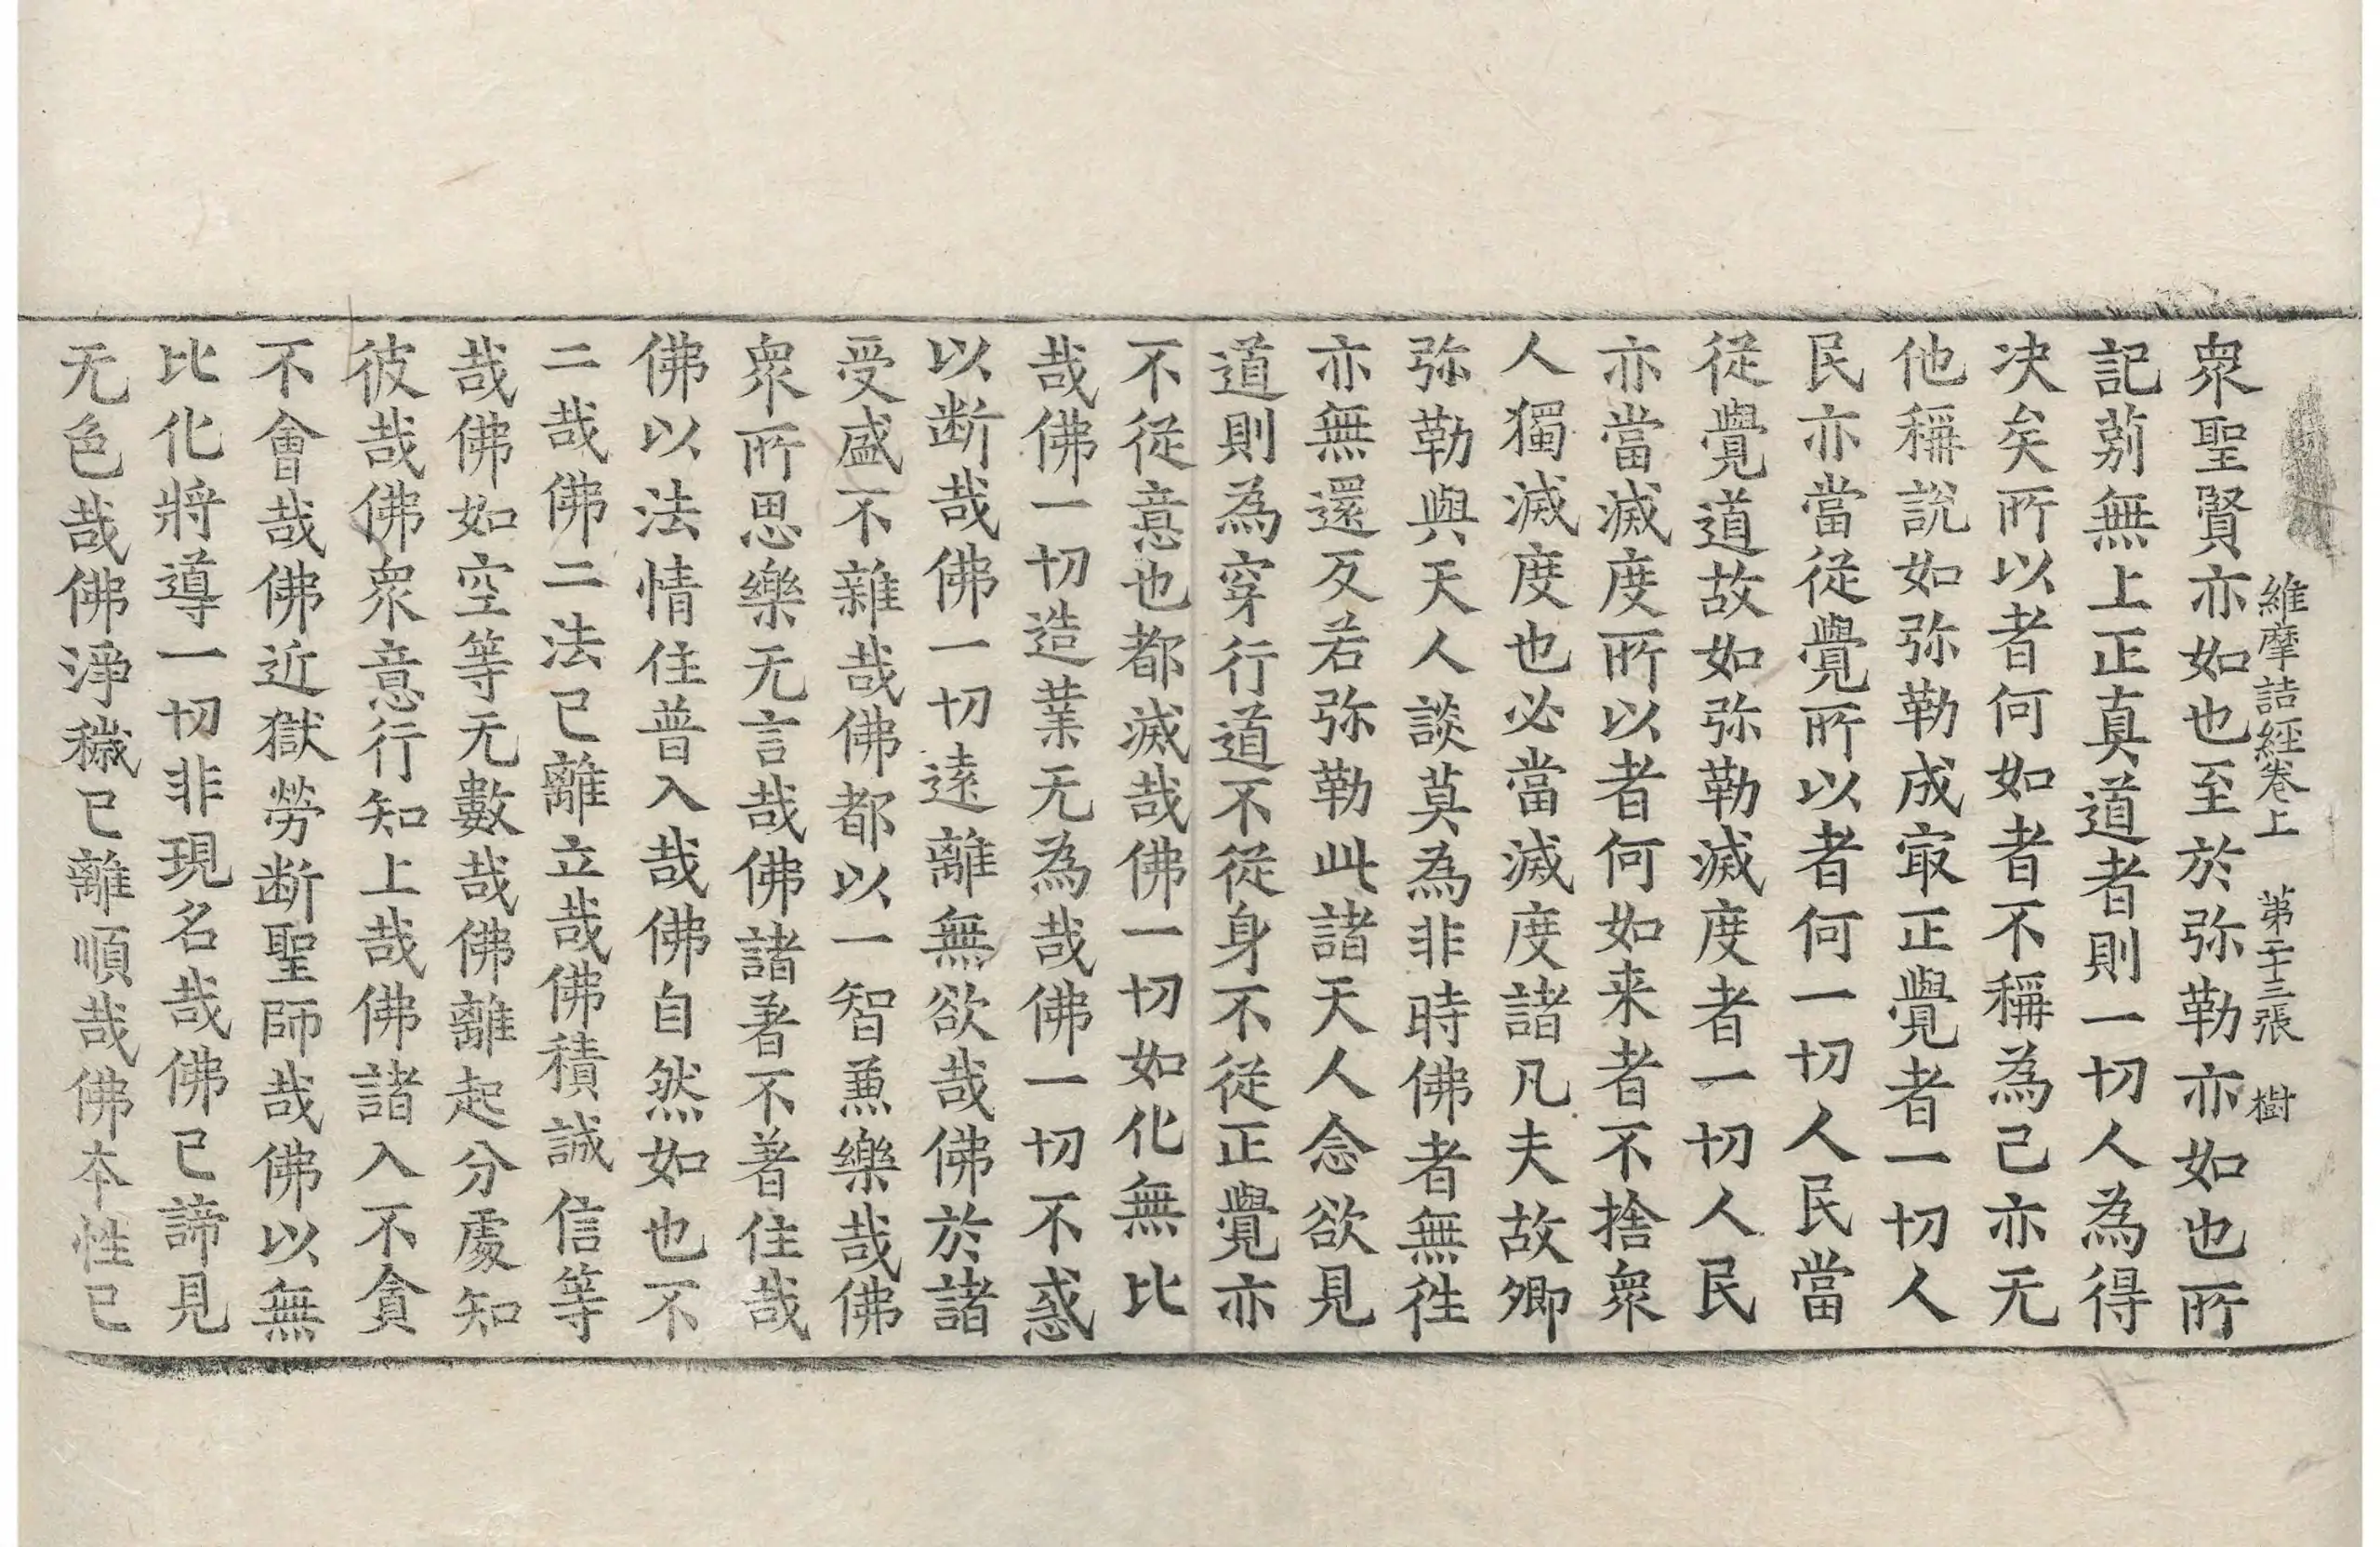 維摩詰經卷上 第二十三張 樹
衆聖賢亦如也至於弥勒亦如也所
記莂無上正真道者則一切人為得
决矣所以者何如者不稱為己亦无
他稱說如弥勒成㝡正覺者一切人
民亦當從覺所以者何一切人民當
從覺道故如弥勒滅度者一切人民
亦當滅度所以者何如来者不捨衆
人獨滅度也必當滅度諸凡夫故卿
弥勒與天人談莫為非時佛者無徃
亦無還反若弥勒此諸天人念欲見
道則為穿行道不從身不從正覺亦
不從意也都滅哉佛一切如化無比
哉佛一切造業无為哉佛一切不惑
以断哉佛一切遠離無欲哉佛於諸
受盛不雜哉佛都以一智𠔥樂哉佛
衆所思樂无言哉佛諸著不著住哉
佛以法情住普入哉佛自然如也不
二哉佛二法已離立哉佛積誠信等
哉佛如空等无數哉佛離起分處知
彼哉佛衆意行知上哉佛諸入不貪
不會哉佛近獄勞断聖師哉佛以無
比化將導一切非現名哉佛已諦見
无色哉佛淨穢已離順哉佛本性已